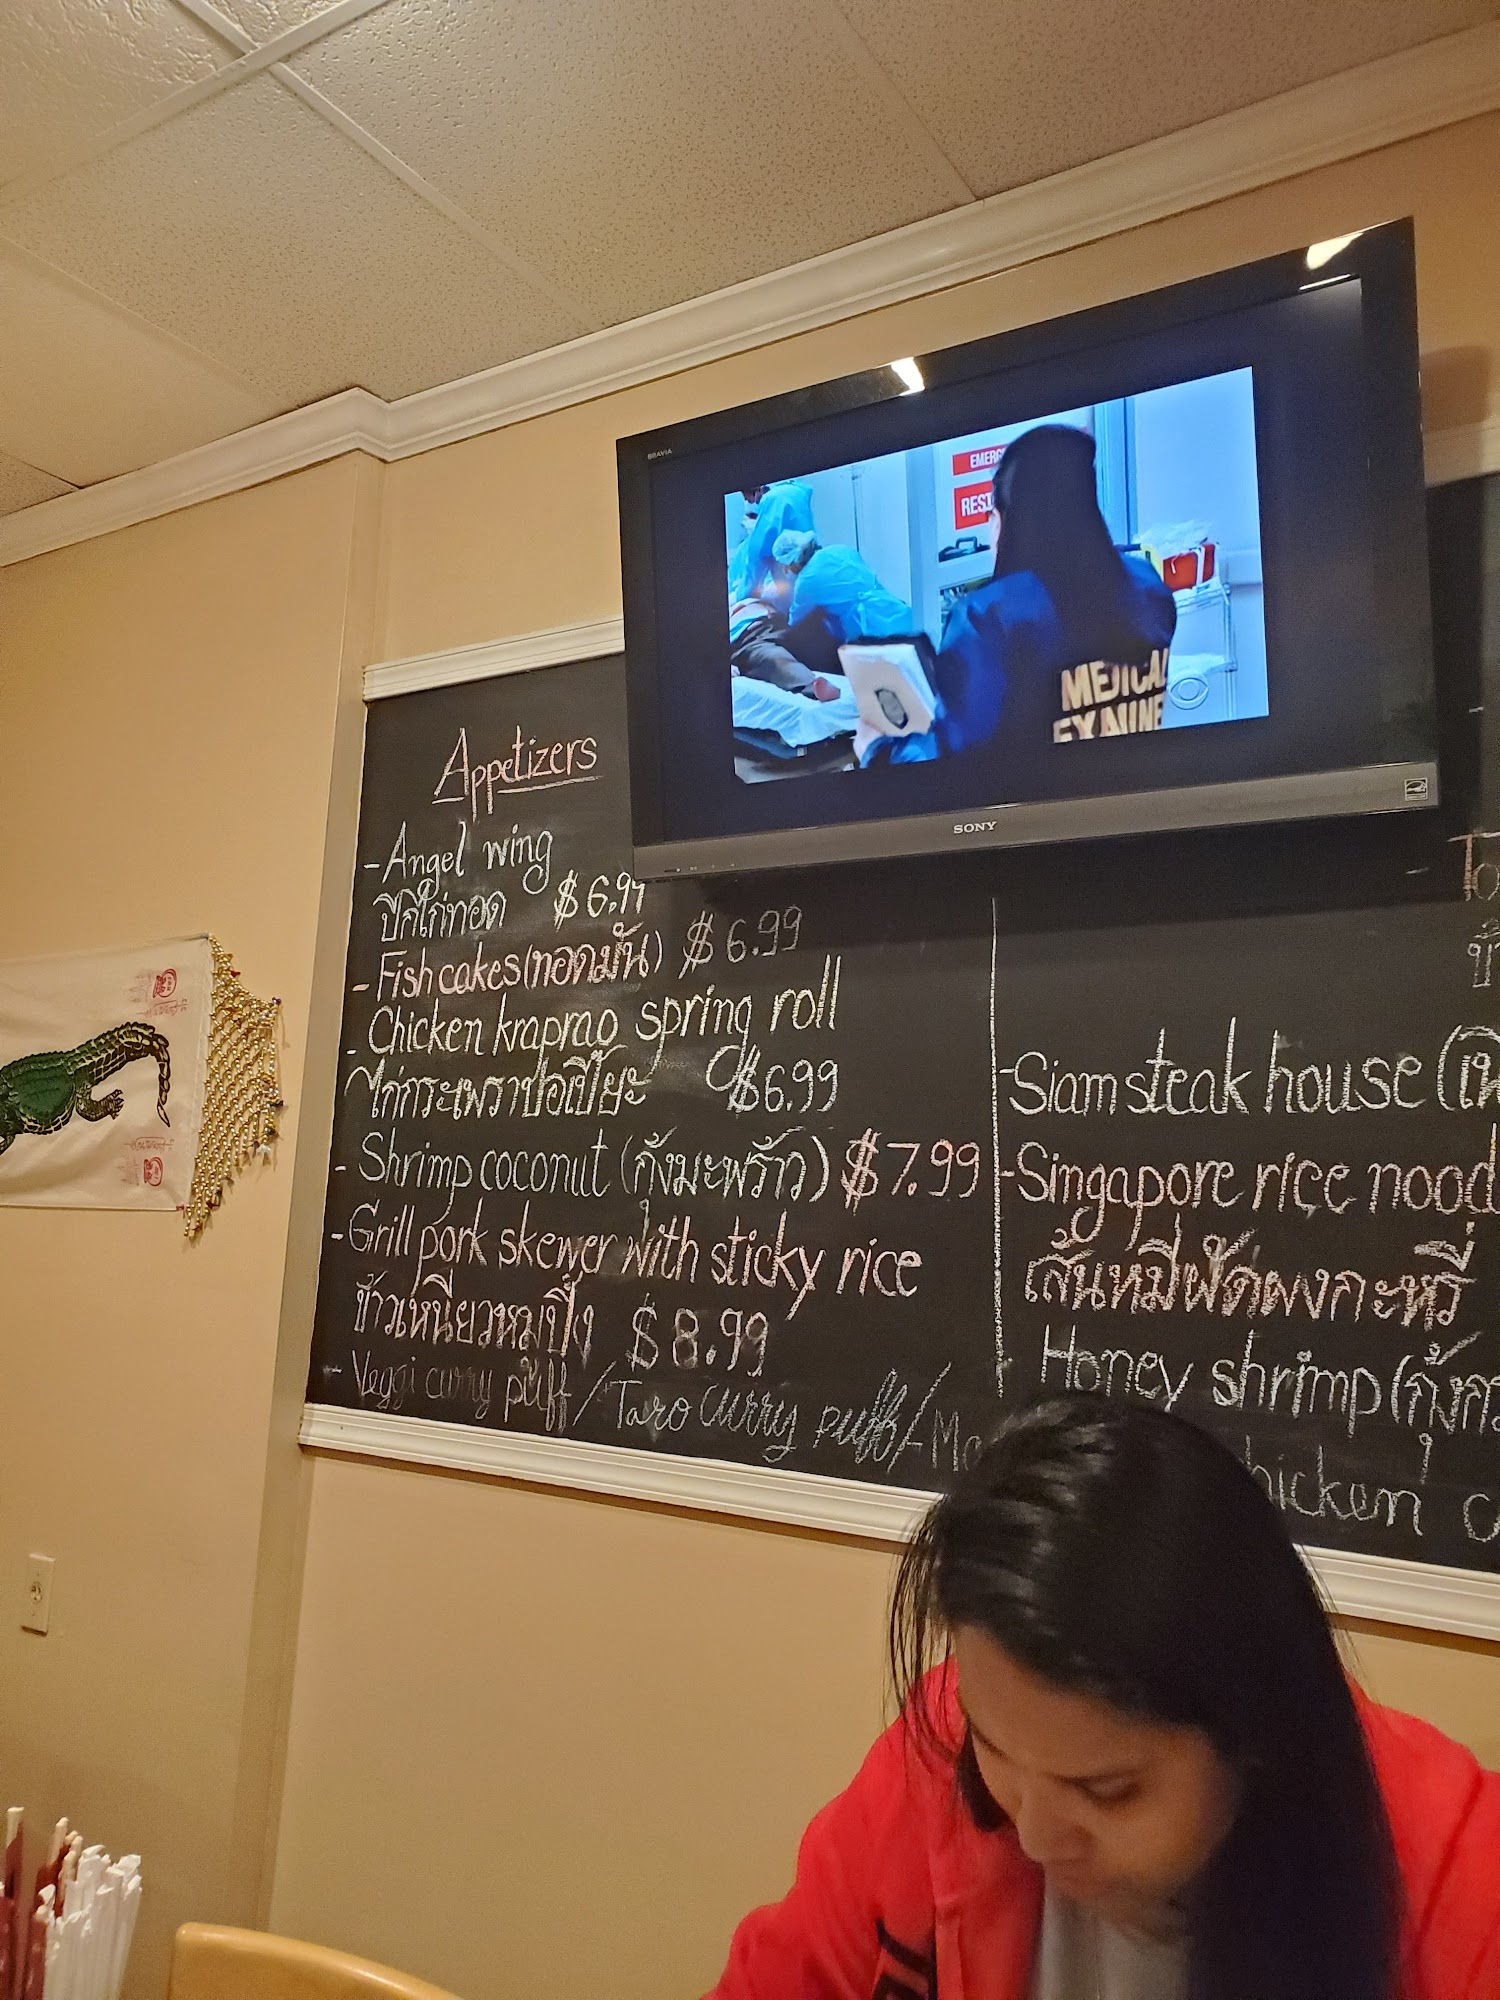 BRAVIA
EMERG
REST
MEDICAL
EXAMINE
SONY
Appetizers
-Angel wing
ปีกไก่ทอด $6.99
-Fish cakes(ทอดมัน) $6.99
-Chicken kraprao spring roll
ไก่กระเพราปอเปี๊ยะ $6.99
-Shrimp coconut (กุ้งมะพร้าว) $7.99
-Grill pork skewer with sticky rice
ข้าวเหนียวหมูปิ้ง $8.99
-Veggi curry puff/Taro curry puff/
-Siam steak house
-Singapore rice nood
เส้นหมี่ผัดผงกะหรี่
Honey shrimp (กุ้ง
hicken